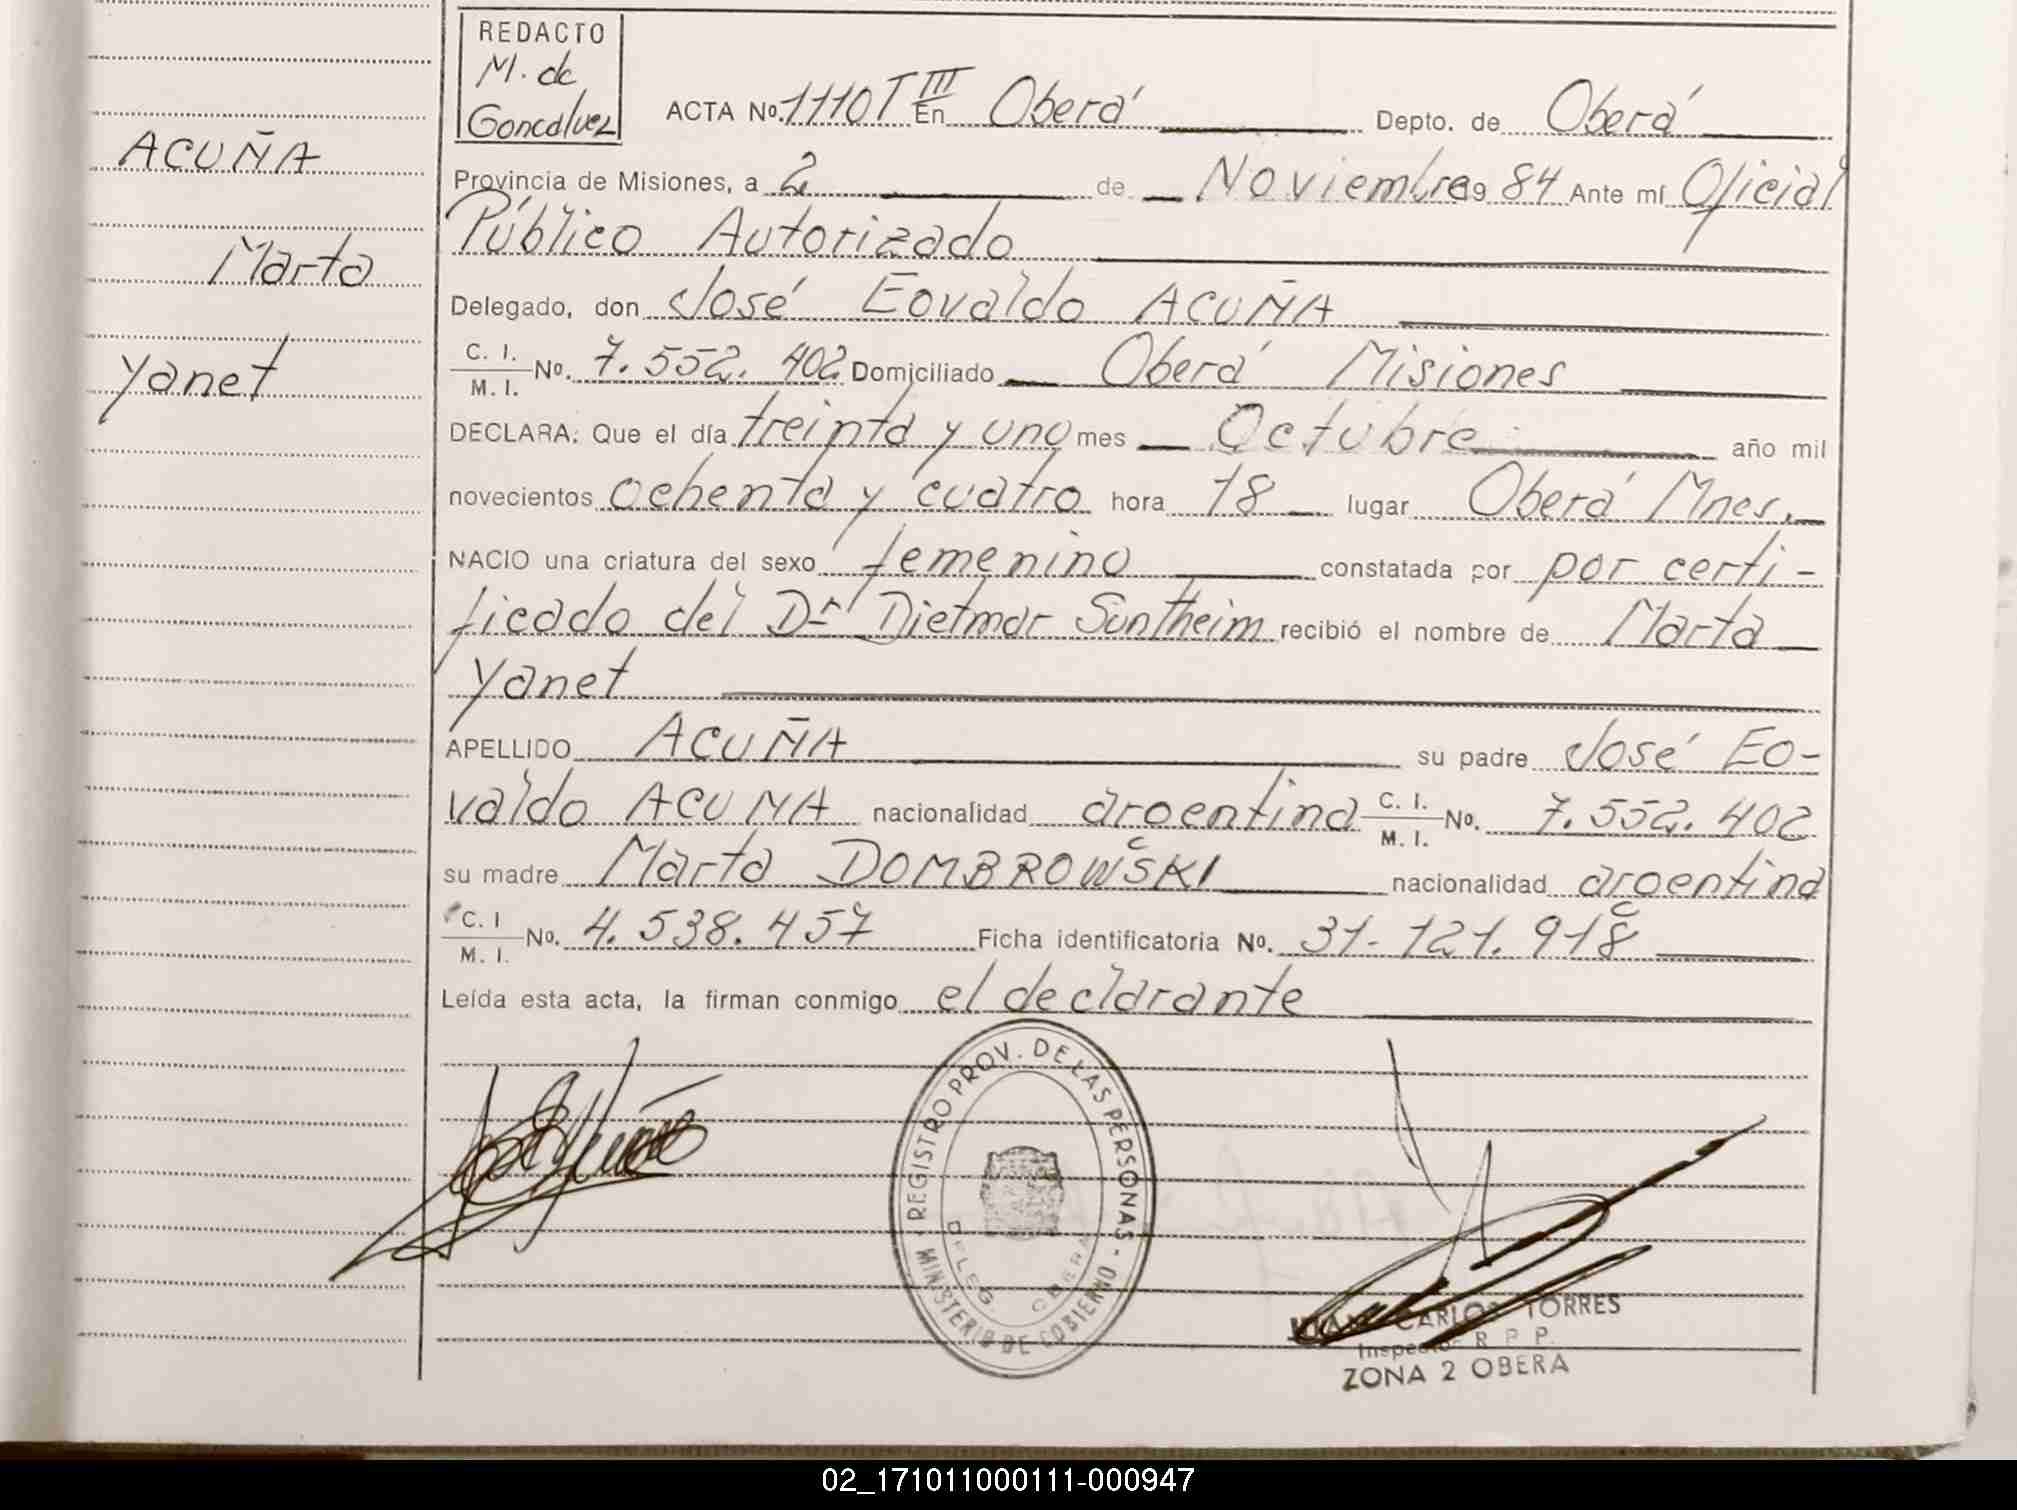 REDACTO
M. de
Goncalvez
ACUÑA
Marta
Yanet
ACTA No. 1110 T III En Oberá Depto. de Oberá
Provincia de Misiones, a 2 de Noviembre 19 84 Ante mí Oficial
Público Autorizado
Delegado, don José Eovaldo ACUÑA
C. I. M. I. No. 7.552.402 Domiciliado Oberá Misiones
DECLARA: Que el día treinta y uno mes Octubre año mil
novecientos ochenta y cuatro hora 18 lugar Oberá Mnes.
NACIO una criatura del sexo femenino constatada por por certi-
ficado del Dr Dietmar Suntheim recibió el nombre de Marta
Yanet
APELLIDO ACUÑA su padre José Eo-
valdo ACUÑA nacionalidad argentina C. I. M. I. No. 7.552.402
su madre Marta DOMBROWSKI nacionalidad argentina
C. I M. I. No. 4.538.457 Ficha identificatoria No. 31-121.918
Leída esta acta, la firman conmigo el declarante
REGISTRO PROV. DE LAS PERSONAS - MINISTERIO DE GOBIERNO
DELEG. OBERA
JUAN CARLOS TORRES
Inspector R. P. P.
ZONA 2 OBERA
02_171011000111-000947